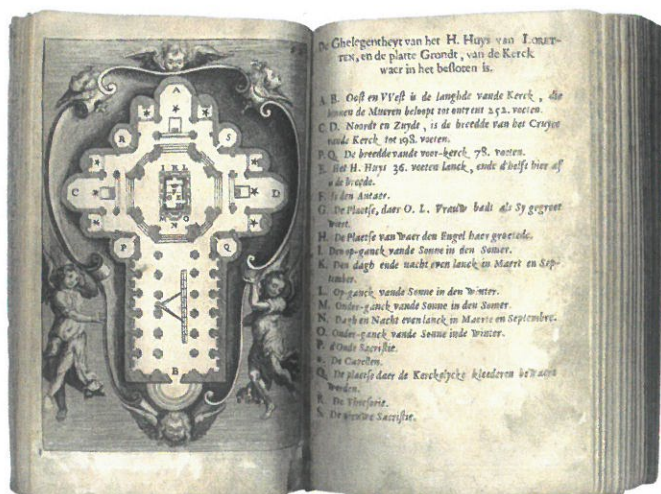 De Ghelegentheyt van het H. Huys van LORET-
TEN, en de platte Grondt, van de Kerck
waer in het besloten is.
A B. Oost en VVest is de langhde vande Kerck, die
binnen de Mueren beloopt tot ontrent 252. voeten.
C D. Noordt en Zuydt, is de breedde van het Cruyce
vande Kerck tot 198. voeten.
P. Q. De breedde vande voor-kerck 78. voeten.
E. Het H. Huys 36. voeten lanck, ende d'helft hier af
in de breede.
F. Is den Autaer.
G. De Plaetse, daer O. L. Vrauw badt als Sy gegroet
wiert.
H. De Plaetse van waer den Engel haer groetede.
I. Den op-ganck vande Sonne in den Somer.
K. Den dagh ende nacht even lanck in Maert en Sep-
tember.
L. Op-ganck vande Sonne in den Winter.
M. Onder-ganck vande Sonne in den Somer.
N. Dagh en Nacht even lanck in Maerte en Septembre.
O. Onder-ganck vande Sonne inde Winter.
P. d'Oude Sacristie.
*. De Capellen.
Q. De plaetse daer de Kerckelycke kleederen bewaert
worden.
R. De Thresorie.
S. De nieuwe Sacristie.
A
R
S
C
D
I
K
L
E
M
N
O
P
Q
B